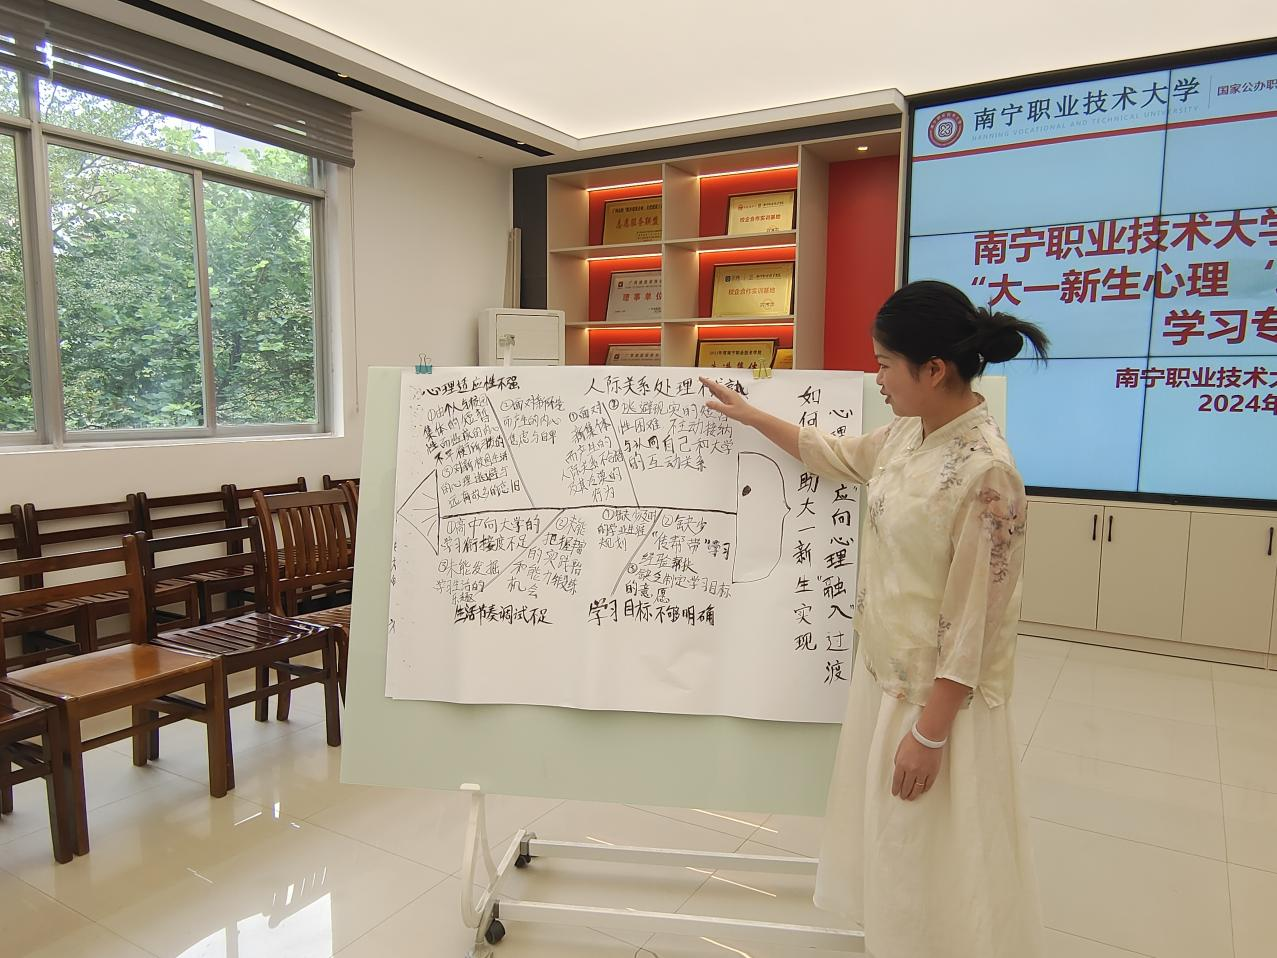 南宁职业技术大学
国家公办职
NANNING VOCATIONAL AND TECHNICAL UNIVERSITY
南宁职业技术大学
“大一新生心理“
学习专
南宁职业技术大
2024年
志愿服务联盟
校企合作实训基地
理事单位
校企合作实训基地
心理适应性不强
①由个人与
集体的
②面对
而产生的内心
焦虑与自卑
③对新校园生活
的心理逃避与
人际关系处理不成熟
①面对
新集体
而产生的
人际关系不会
②逃避现实的
性困难
不主动接纳
与认同自己和大学
的互动关系
行为
①高中向大学的
学习衔接度不足
②未能
把握
的实践
和能力锻炼
机会
③未能发掘
学习生活的
乐趣
生活节奏调试不足
①缺少
的学业生涯
规划
②缺少
“传帮带”学习
经验帮扶
③缺乏制定学习目标
的意愿
学习目标不够明确
如何
助大一新生实现
心理
应”向“心理融入”过渡